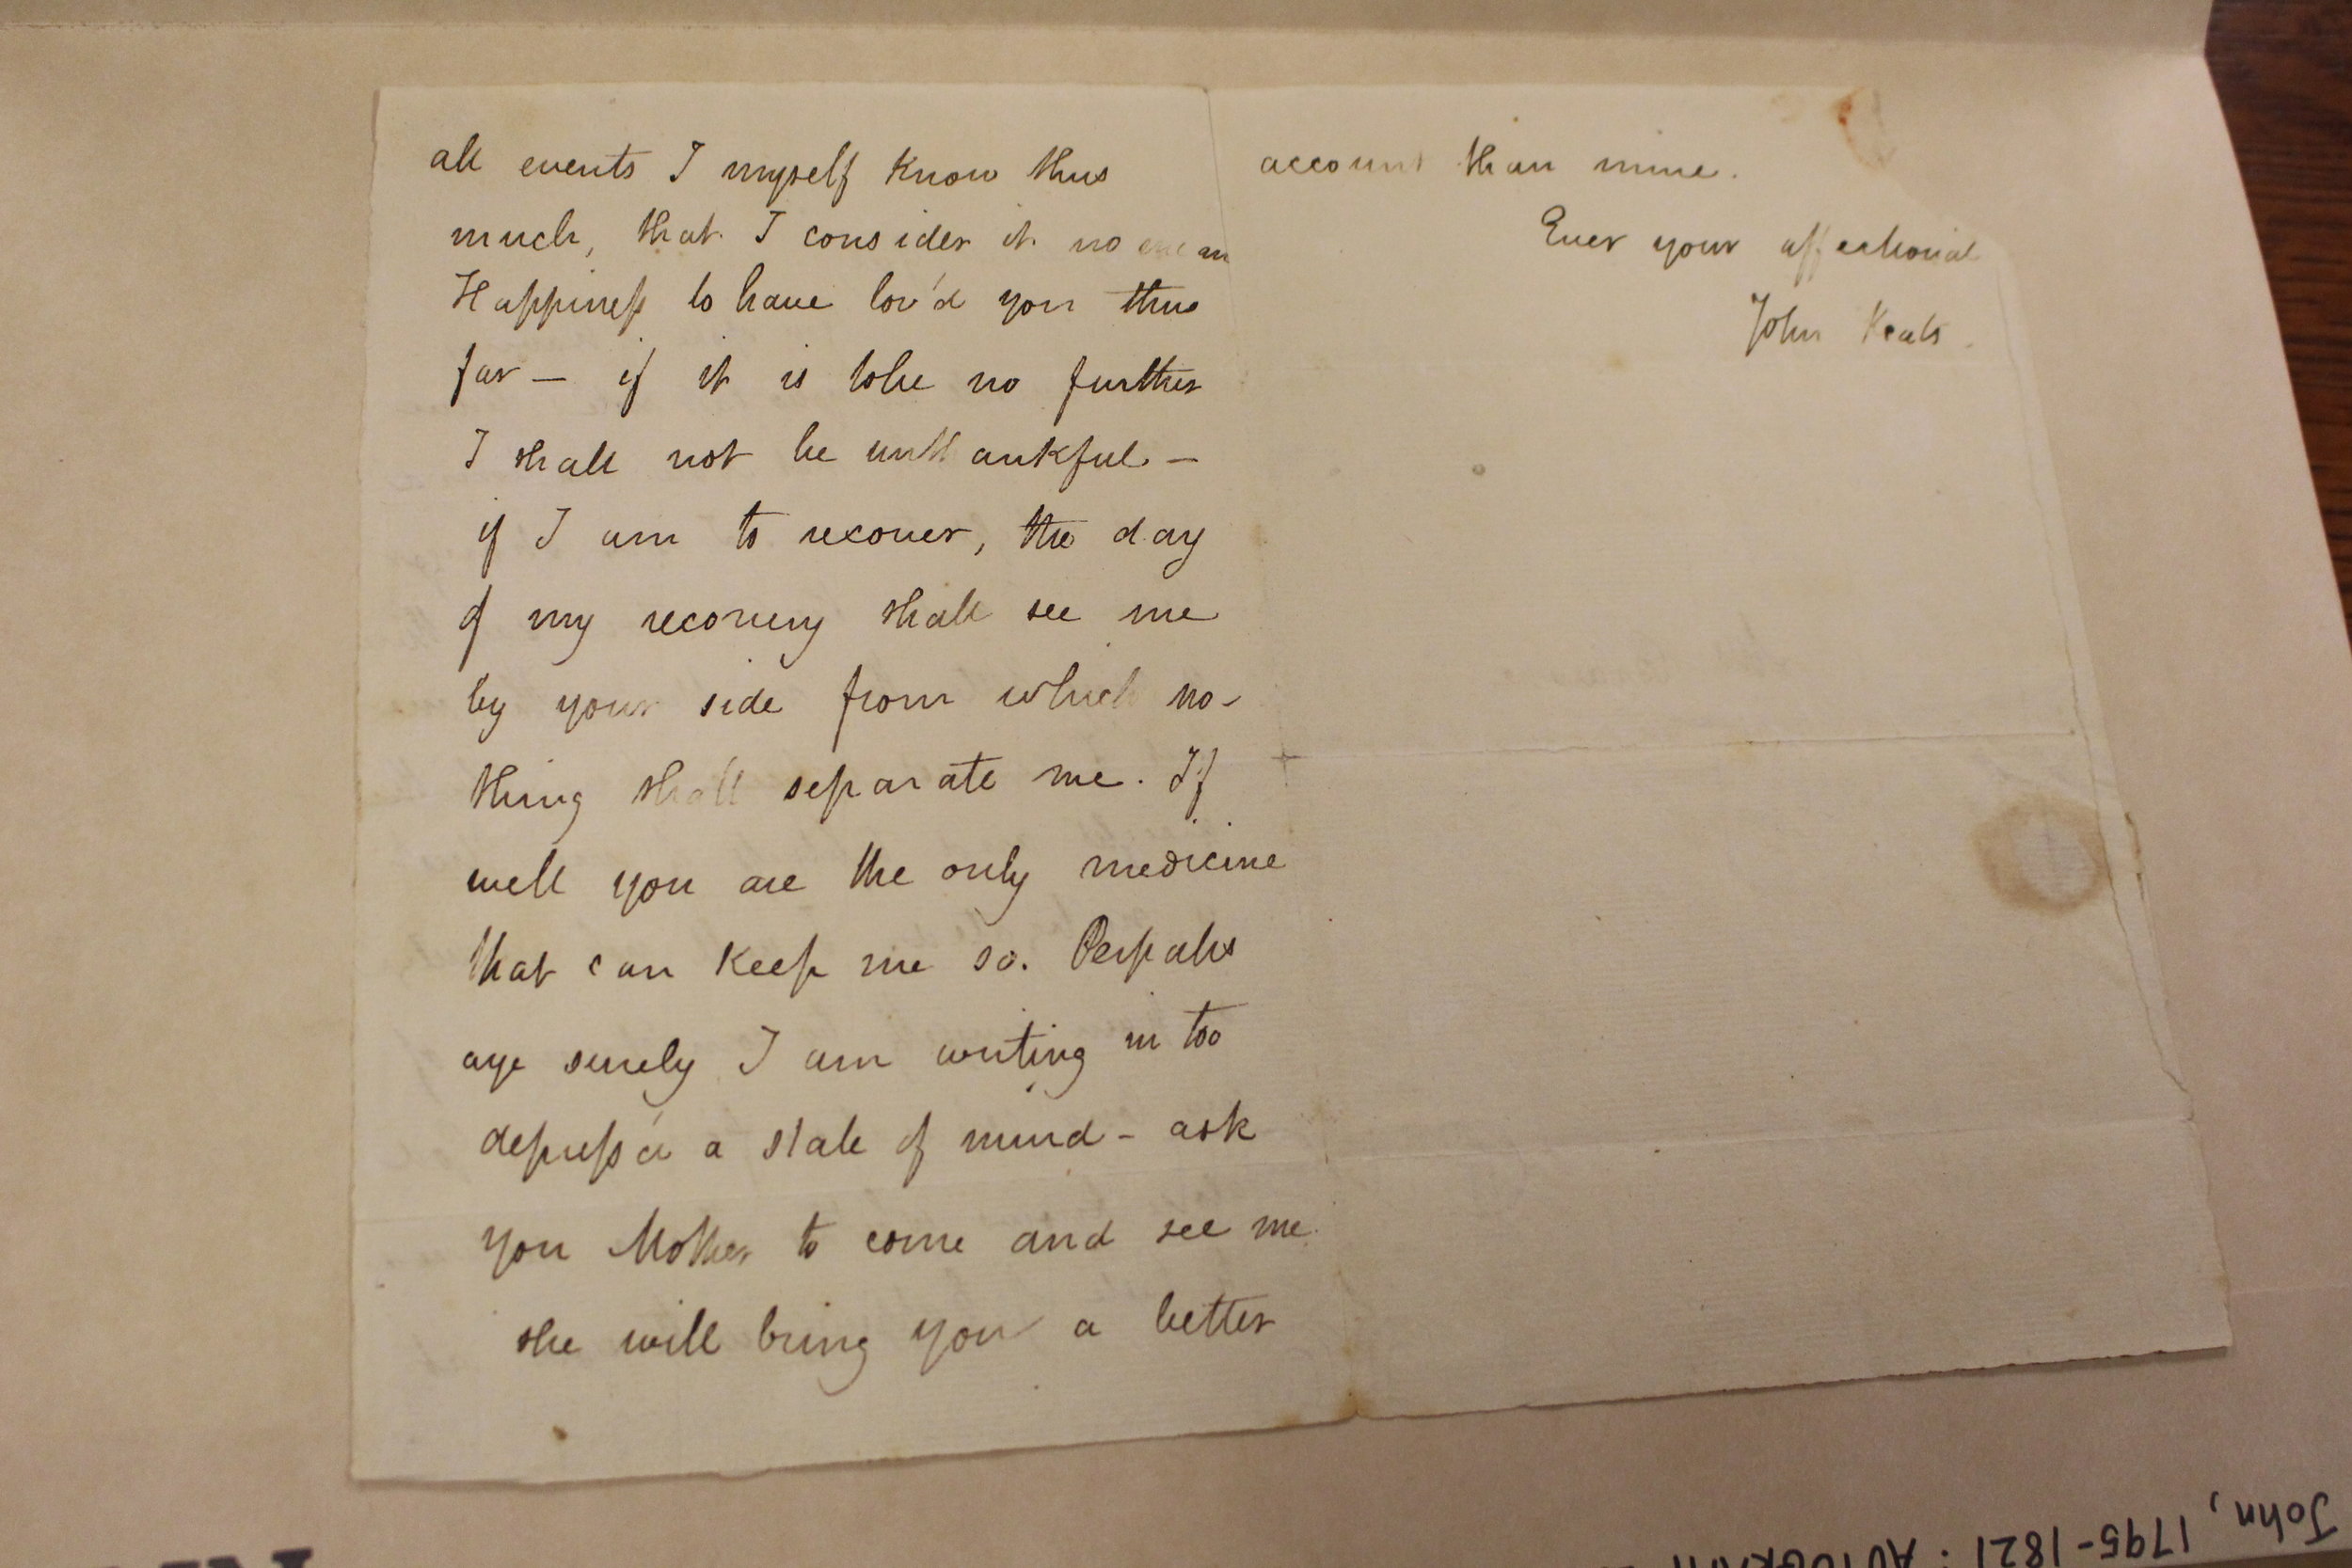 all events I myself know thus
much, that I consider it no mean
Happiness to have lov'd you thus
far — if it is tobe no further
I shall not be unthankful —
if I am to recover, the day
of my recovery shall see me
by your side from which no-
thing shall separate me. If
well you are the only medicine
that can keep me so. Perpahs
aye surely I am writing in too
depress'd a state of mind - ask
you Mother to come and see me
she will bring you a better
account than mine.
Ever your affectionat
John Keats.
John, 1795-1821 :